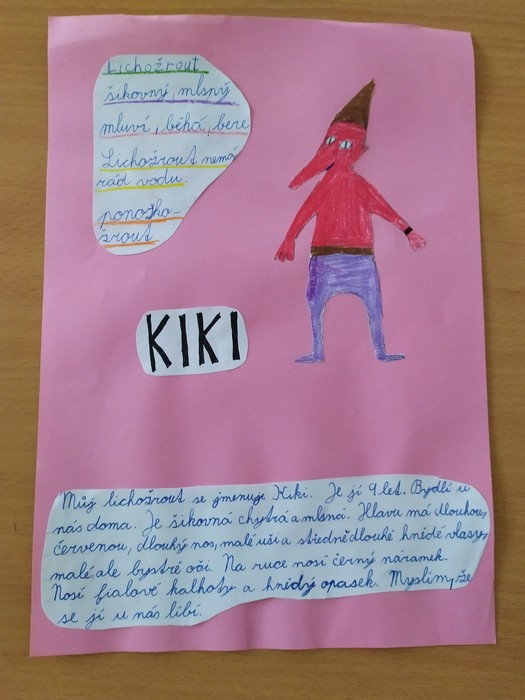 Lichožrout
šikovný, mlsný
mluví, běhá, bere
Lichožrout nemá
rád vodu.
ponožko-
žrout
KIKI
Můj lichožrout se jmenuje Kiki. Je jí 9 let. Bydlí u
nás doma. Je šikovná chytrá a mlsná. Hlavu má dlouhou,
červenou, dlouhý nos, malé uši a středně dlouhé hnědé vlasy,
malé, ale bystré oči. Na ruce nosí černý náramek.
Nosí fialové kalhoty a hnědý opasek. Myslím, že
se jí u nás líbí.